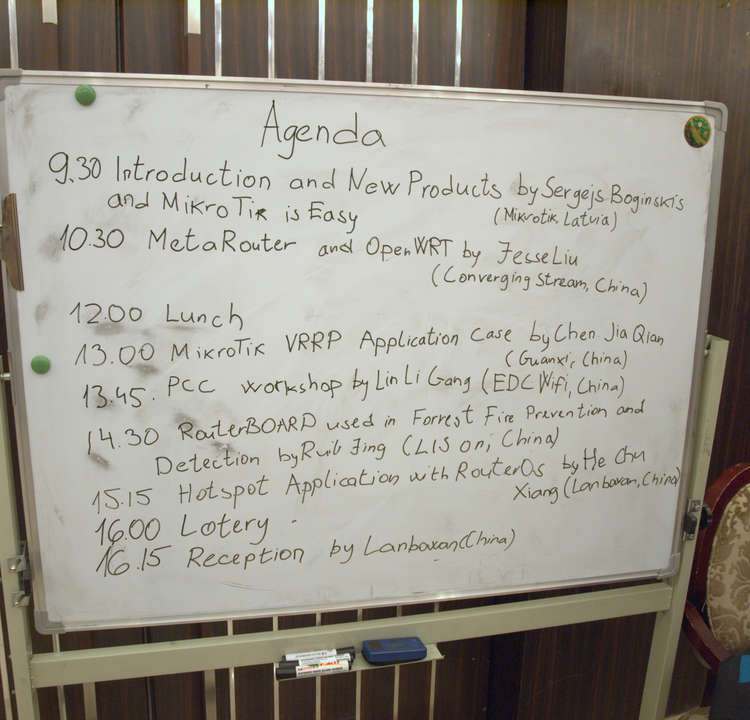 Agenda
9.30 Introduction and New Products by Sergejs Boginskis
and MikroTik is Easy (Mikrotik, Latvia)
10.30 MetaRouter and OpenWRT by Jesse Liu
(Converging Stream, China)
12.00 Lunch
13.00 MikroTik VRRP Application Case by Chen Jia Qian
(Guanxi, China)
13.45. PCC workshop by Lin Li Gang (EDC Wifi, China)
14.30 RouterBOARD used in Forrest Fire Prevention and
Detection by Jing (China)
15.15 Hotspot Application with RouterOs by He Chu
Xiang (Lanboxan, China)
16.00 Lotery
16.15 Reception by Lanboxan (China)